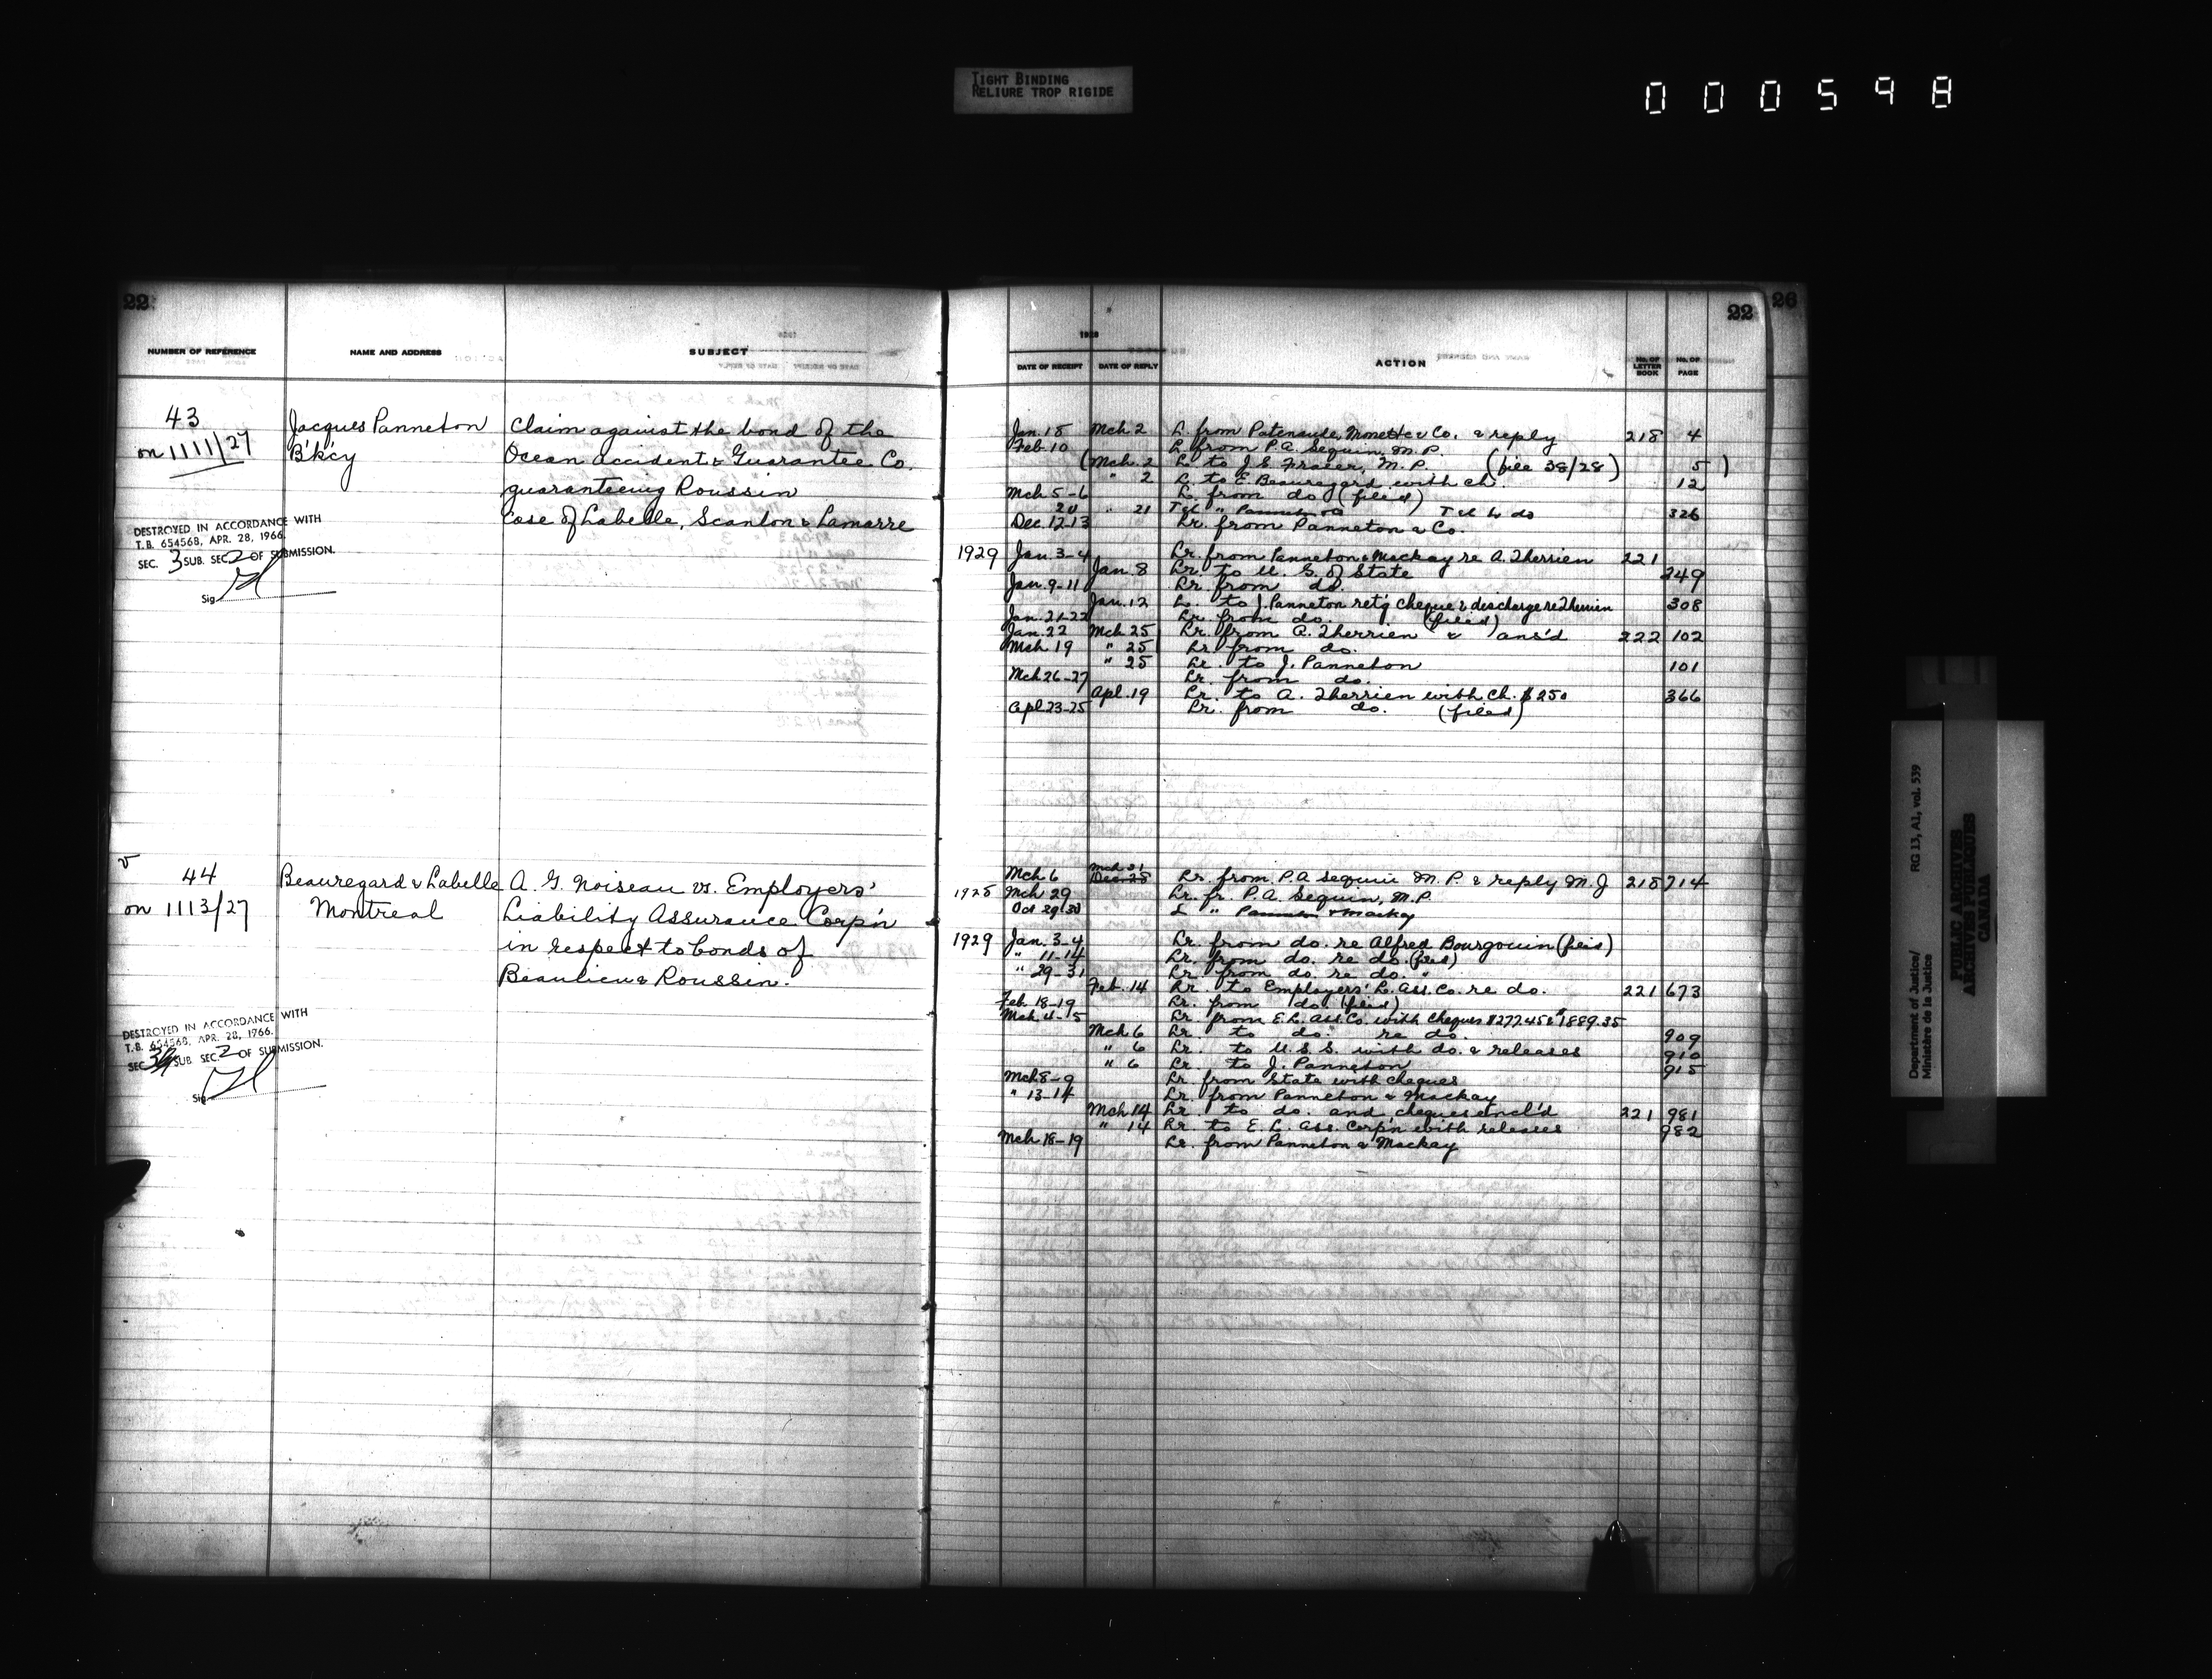 TIGHT BINDING
RELIURE TROP RIGIDE
000598
22
NUMBER OF REFERENCE NAME AND ADDRESS SUBJECT
43 Jacques Panneton Claim against the bond of the
on 1111/27 B'k'cy Ocean accident & Guarantee Co.
guaranteeing Roussin
Case of Labelle, Scanlon & Lamarre
DESTROYED IN ACCORDANCE WITH
T.B. 654568, APR. 28, 1966.
SEC. 3 SUB. SEC. 2 OF SUBMISSION.
Sig
44 Beauregard & Labelle A. G. Noiseau vs. Employers'
on 1113/27 Montreal Liability Assurance Corp'n
in respect to bonds of
Beaulieu & Roussin.
DESTROYED IN ACCORDANCE WITH
T.B. 654568, APR. 28, 1966.
SEC. SUB SEC. 2 OF SUBMISSION.
Sig
22 26
1928
DATE OF RECEIPT DATE OF REPLY ACTION No. OF LETTER BOOK No. OF PAGE
Jan. 18 Mch 2 L. from Patenaude, Monette & Co. & reply 218 4
Feb. 10 L. from P.A. Seguin, M.P.
(Mch. 2 L. to J. E. Fraser, M.P. (file 38/28) 5 )
" 2 L. to E. Beauregard with ch. 12
Mch 5-6 L. from do (filed)
20 " 21 Tel " Tel to do 326
Dec. 12-13 Lr. from Panneton & Co.
1929 Jan. 3-4 Lr. from Panneton & Mackay re A. Therrien 221
Jan. 8 Lr. to U. S. of State 249
Jan. 9-11 Lr. from do.
Jan. 12 L. to J. Panneton ret'g cheque & discharge re Therrien 308
Jan. 21-22 Lr. from do. (filed)
Jan. 22 Mch 25 Lr. from A. Therrien & ans'd 222 102
Mch. 19 " 25 Lr. from do.
" 25 Lr. to J. Panneton 101
Mch 26-27 Lr. from do.
Apl. 19 Lr. to A. Therrien with ch. $250 366
Apl 23-25 Lr. from do. (filed)
Mch 6 Mch 21 Lr. from P.A. Seguin M.P. & reply M.J 218 714
1928 Mch 29 Lr. fr. P.A. Seguin, M.P.
Oct 29-30 L " Panneton & Mackay
1929 Jan. 3-4 Lr. from do. re Alfred Bourgouin (file)
" 11-14 Lr. from do. re do. (filed)
" 29-31 Lr. from do. re do. "
Feb. 14 Lr. to Employers' L. Ass. Co. re do. 221 673
Feb. 18-19 Lr. from do. (filed)
Mch. 4-5 Lr. from E.L. Ass. Co. with cheques $277.45 & $1889.35
Mch 6 Lr. to do. re do. 909
" 6 Lr. to U.S.S. with do. & releases 910
" 6 Lr. to J. Panneton 915
Mch 8-9 Lr. from State with cheques
" 13-14 Lr. from Panneton & Mackay
Mch 14 Lr. to do. and cheques encl'd 221 981
" 14 Lr. to E. L. Ass. Corp'n with releases 982
Mch 18-19 Lr. from Panneton & Mackay
Department of Justice/ RG 13, A1, vol. 539
Ministère de la Justice
PUBLIC ARCHIVES
ARCHIVES PUBLIQUES
CANADA